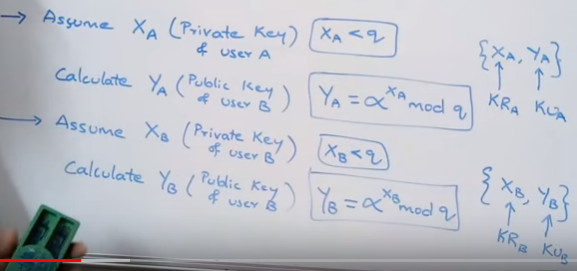 → Assume X_A (Private Key of user A) X_A < q
Calculate Y_A (Public Key of user B) Y_A = α^X_A mod q
{X_A, Y_A}
↑ ↑
KR_A KU_A
→ Assume X_B (Private Key of user B) X_B < q
Calculate Y_B (Public Key of user B) Y_B = α^X_B mod q
{X_B, Y_B}
↑ ↑
KR_B KU_B